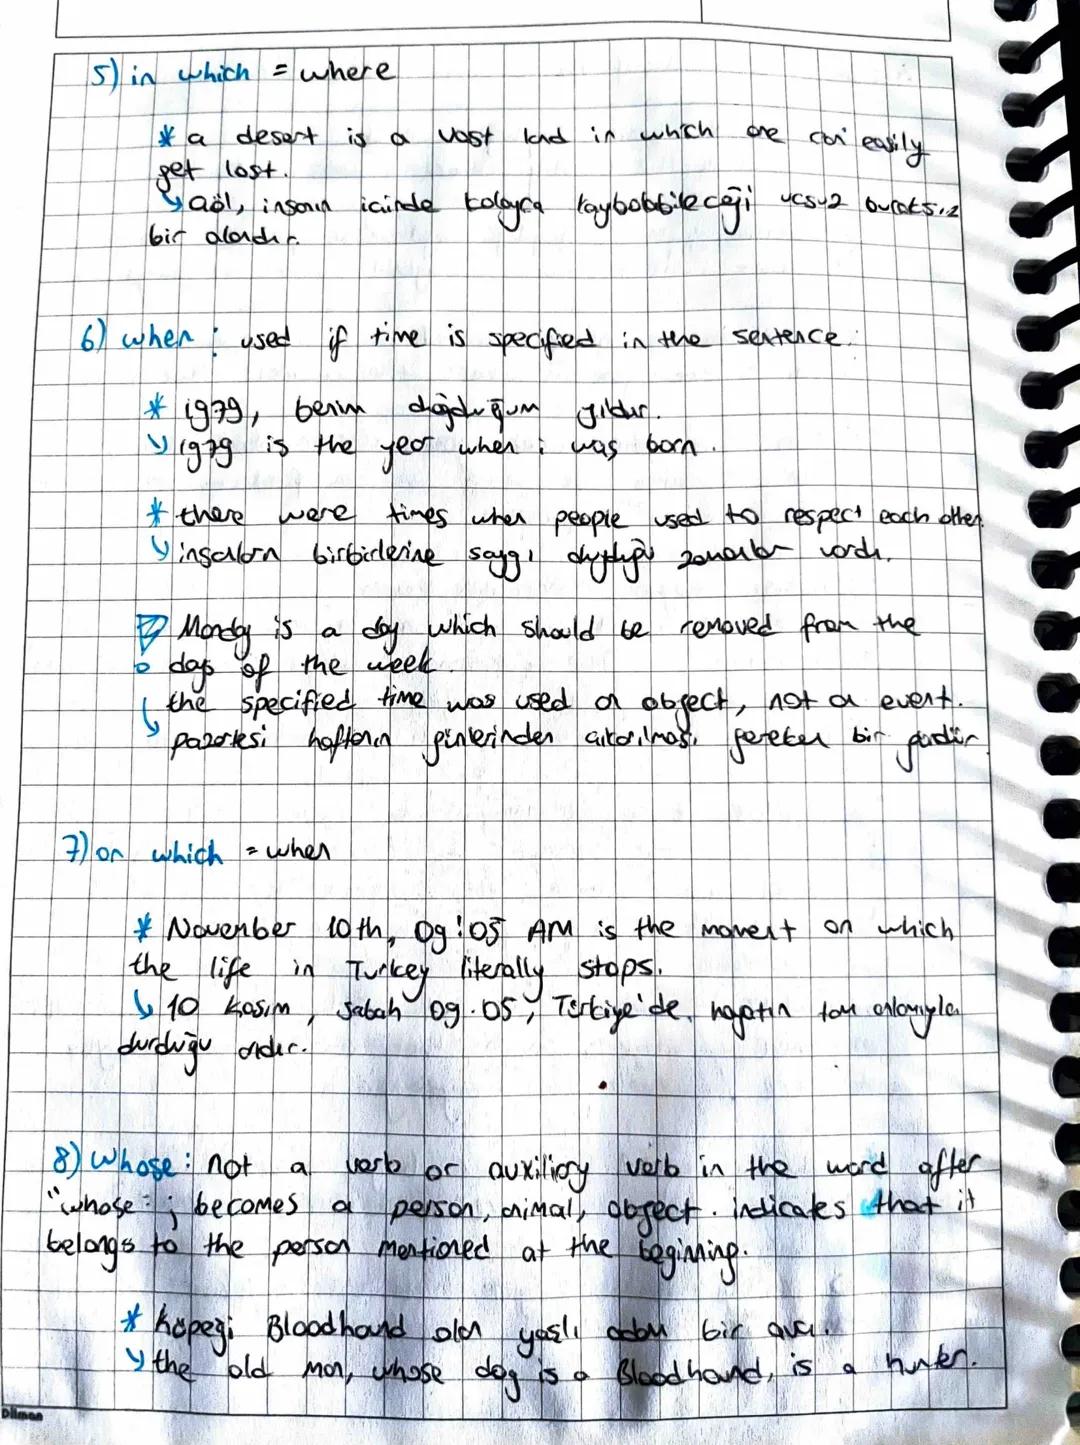 5) in which = where
* a desert is a vast land in which one can easily
get lost.
↳ çöl, insanın icinde kolayca kaybolabileceği ucsuz bucaksız
bir alandır.
6) when : used if time is specified in the sentence.
* 1979, benim doğduğum yıldır.
↳ 1979 is the year when i was born.
* there were times when people used to respect each other.
↳ insanların birbirlerine saygı duyduğu zamanlar vardı.
Monday is a day which should be removed from the
days of the week.
the specified time was used an object, not a event.
↳ pazartesi haftanın günlerinden çıkarılması gereken bir gündür
7) on which = when
* November 10th, 09:05 AM is the moment on which
the life in Turkey literally stops.
↳ 10 Kasım, sabah 09.05, Türkiye'de, hayatın tam anlamıyla
durduğu andır.
8) Whose : not a verb or auxiliary verb in the word after
"whose" ; becomes a person, animal, object. indicates that it
belongs to the person mentioned at the beginning.
* Köpeği Bloodhound olan yaşlı adam bir avcı.
↳ the old man, whose dog is a Bloodhound, is a hunter.
Dilman